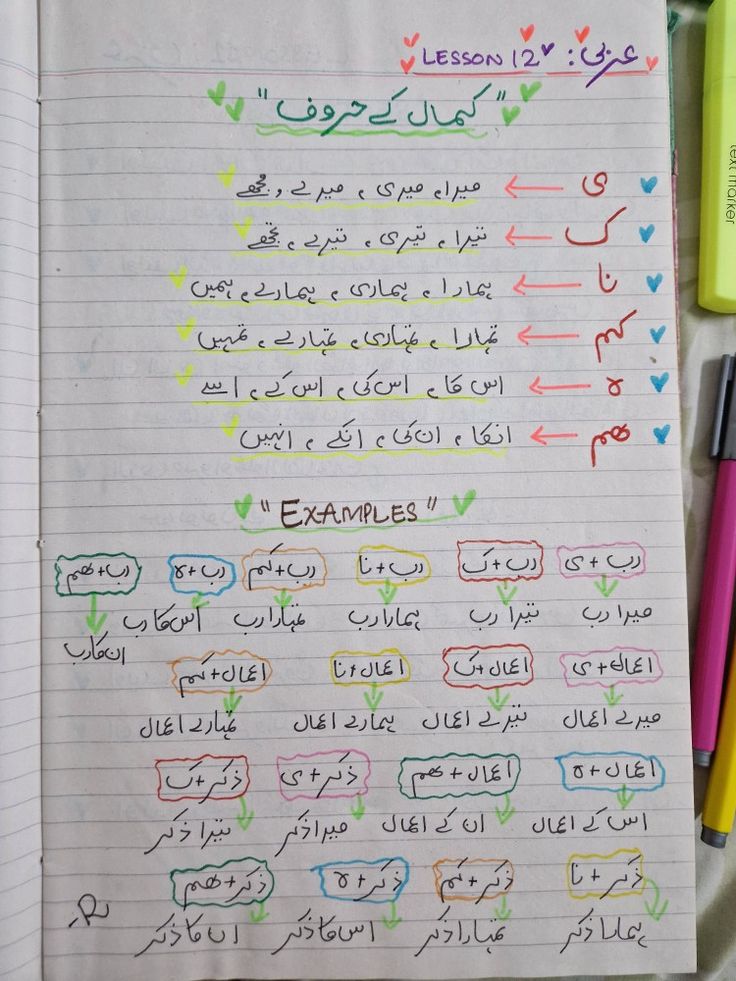 عربی: LESSON 12
"کمال کے حروف"
ی ← میرا، میری، میرے، مجھے
ک ← تیرا، تیری، تیرے، تجھے
نا ← ہمارا، ہماری، ہمارے، ہمیں
کم ← تمہارا، تمہاری، تمہارے، تمہیں
ہ ← اس کا، اس کی، اس کے، اسے
ھم ← انکا، ان کی، انکے، انہیں
"EXAMPLES"
رب+ی رب+ک رب+نا رب+کم رب+ہ رب+ھم
میرا رب تیرا رب ہمارا رب تمہارا رب اس کا رب ان کا رب
اعمال+ی اعمال+ک اعمال+نا اعمال+کم
میرے اعمال تیرے اعمال ہمارے اعمال تمہارے اعمال
اعمال+ہ اعمال+ھم ذکر+ی ذکر+ک
اس کے اعمال ان کے اعمال میرا ذکر تیرا ذکر
ذکر+نا ذکر+کم ذکر+ہ ذکر+ھم
ہمارا ذکر تمہارا ذکر اس کا ذکر ان کا ذکر
text marker